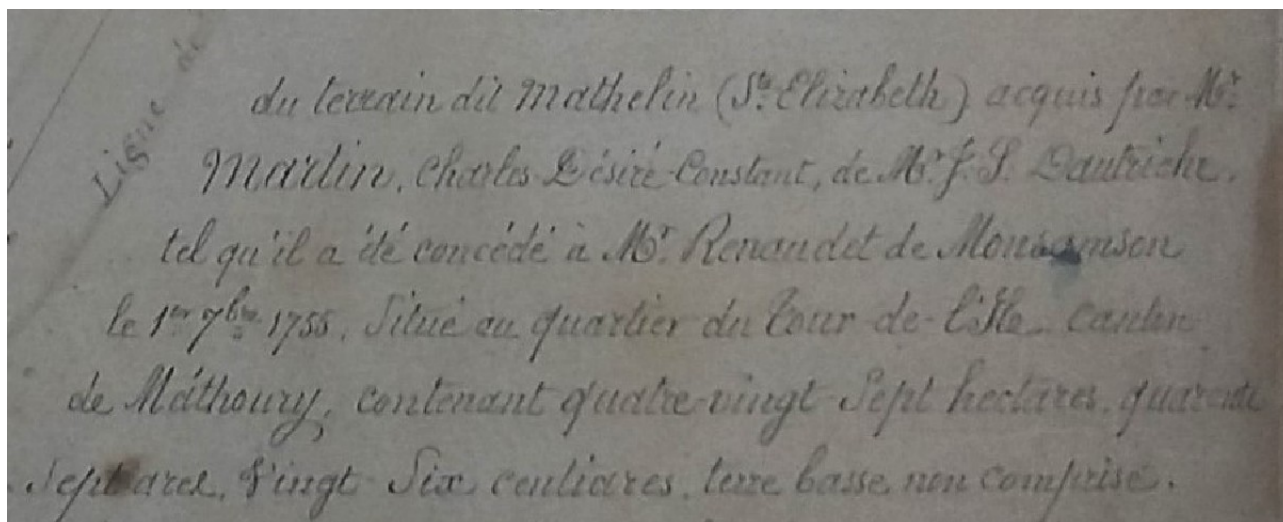 Ligne de
du terrain dit Mathelin (Ste Elizabeth) acquis par Mr
Martin, Charles Désiré Constant, de Mr J. S. Dautriche,
tel qu'il a été concédé à Mr Renaudet de Monsamson
le 1er 7bre 1755, Situé au quartier du Tour-de-l'Isle canton
de Mathoury, contenant quatre-vingt Sept hectares, quarante
Sept ares, Vingt Six centiares, terre basse non comprise.